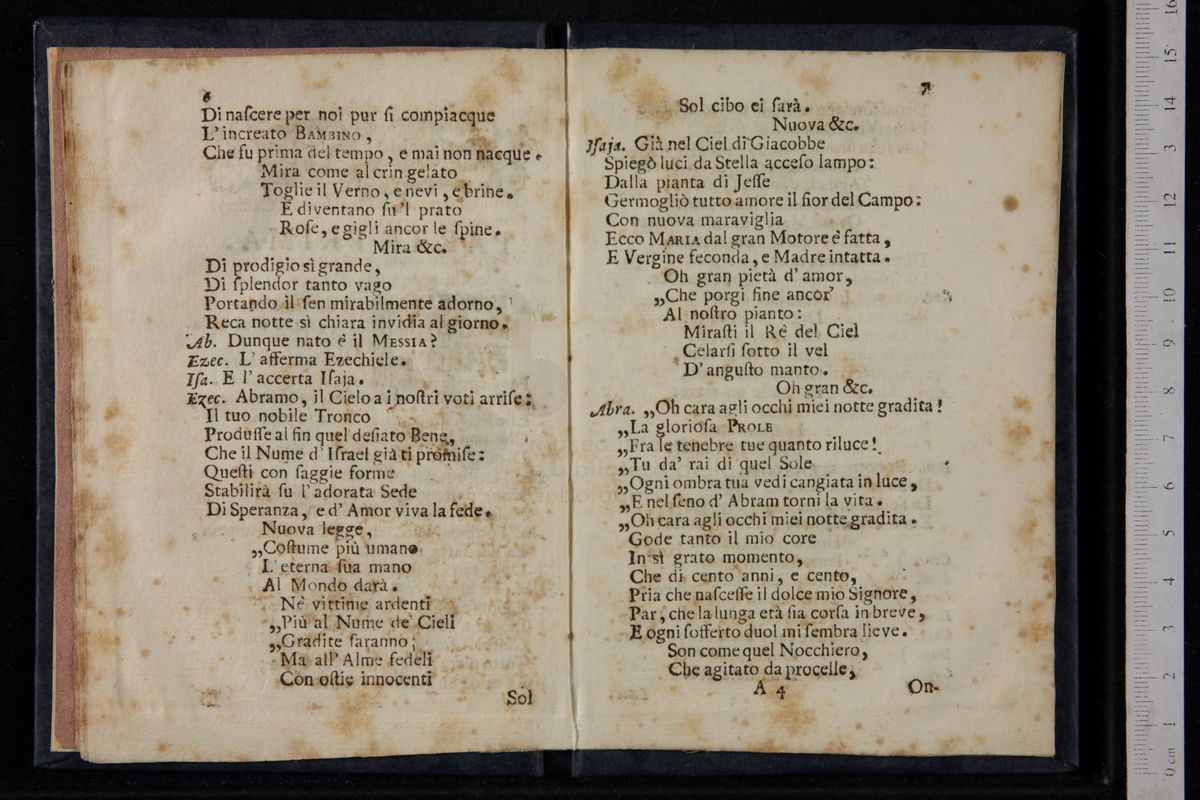 6
Di naſcere per noi pur ſi compiacque
L'increato BAMBINO,
Che fu prima del tempo, e mai non nacque.
Mira come al crin gelato
Toglie il Verno, e nevi, e brine.
E diventano ſu'l prato
Roſe, e gigli ancor le ſpine.
Mira &c.
Di prodigio sì grande,
Di ſplendor tanto vago
Portando il ſen mirabilmente adorno,
Reca notte sì chiara invidia al giorno.
Ab. Dunque nato è il MESSIA?
Ezec. L'afferma Ezechiele.
Iſa. E l'accerta Iſaja.
Ezec. Abramo, il Cielo a i noſtri voti arriſe:
Il tuo nobile Tronco
Produſſe al fin quel deſiato Bene,
Che il Nume d'Iſrael già ti promiſe:
Queſti con ſaggie forme
Stabilirà ſu l'adorata Sede
Di Speranza, e d'Amor viva la fede.
Nuova legge,
„Coſtume più umano
L'eterna ſua mano
Al Mondo darà.
Nè vittime ardenti
„Più al Nume de' Cieli
„Gradite ſaranno;
Ma all'Alme fedeli
Con oſtie innocenti
Sol
7
Sol cibo ei ſarà.
Nuova &c.
Iſaja. Già nel Ciel di Giacobbe
Spiegò luci da Stella acceſo lampo:
Dalla pianta di Jeſſe
Germogliò tutto amore il fior del Campo:
Con nuova maraviglia
Ecco MARIA dal gran Motore è fatta,
E Vergine feconda, e Madre intatta.
Oh gran pietà d'amor,
„Che porgi fine ancor'
Al noſtro pianto:
Miraſti il Rè del Ciel
Celarſi ſotto il vel
D'anguſto manto.
Oh gran &c.
Abra. „Oh cara agli occhi miei notte gradita!
„La glorioſa PROLE
„Fra le tenebre tue quanto riluce!
„Tu da' rai di quel Sole
„Ogni ombra tua vedi cangiata in luce,
„E nel ſeno d'Abram torni la vita.
„Oh cara agli occhi miei notte gradita.
Gode tanto il mio core
In sì grato momento,
Che di cento anni, e cento,
Pria che naſceſſe il dolce mio Signore,
Par, che la lunga età ſia corſa in breve,
E ogni ſofferto duol mi ſembra lieve.
Son come quel Nocchiero,
Che agitato da procelle,
A 4
On-